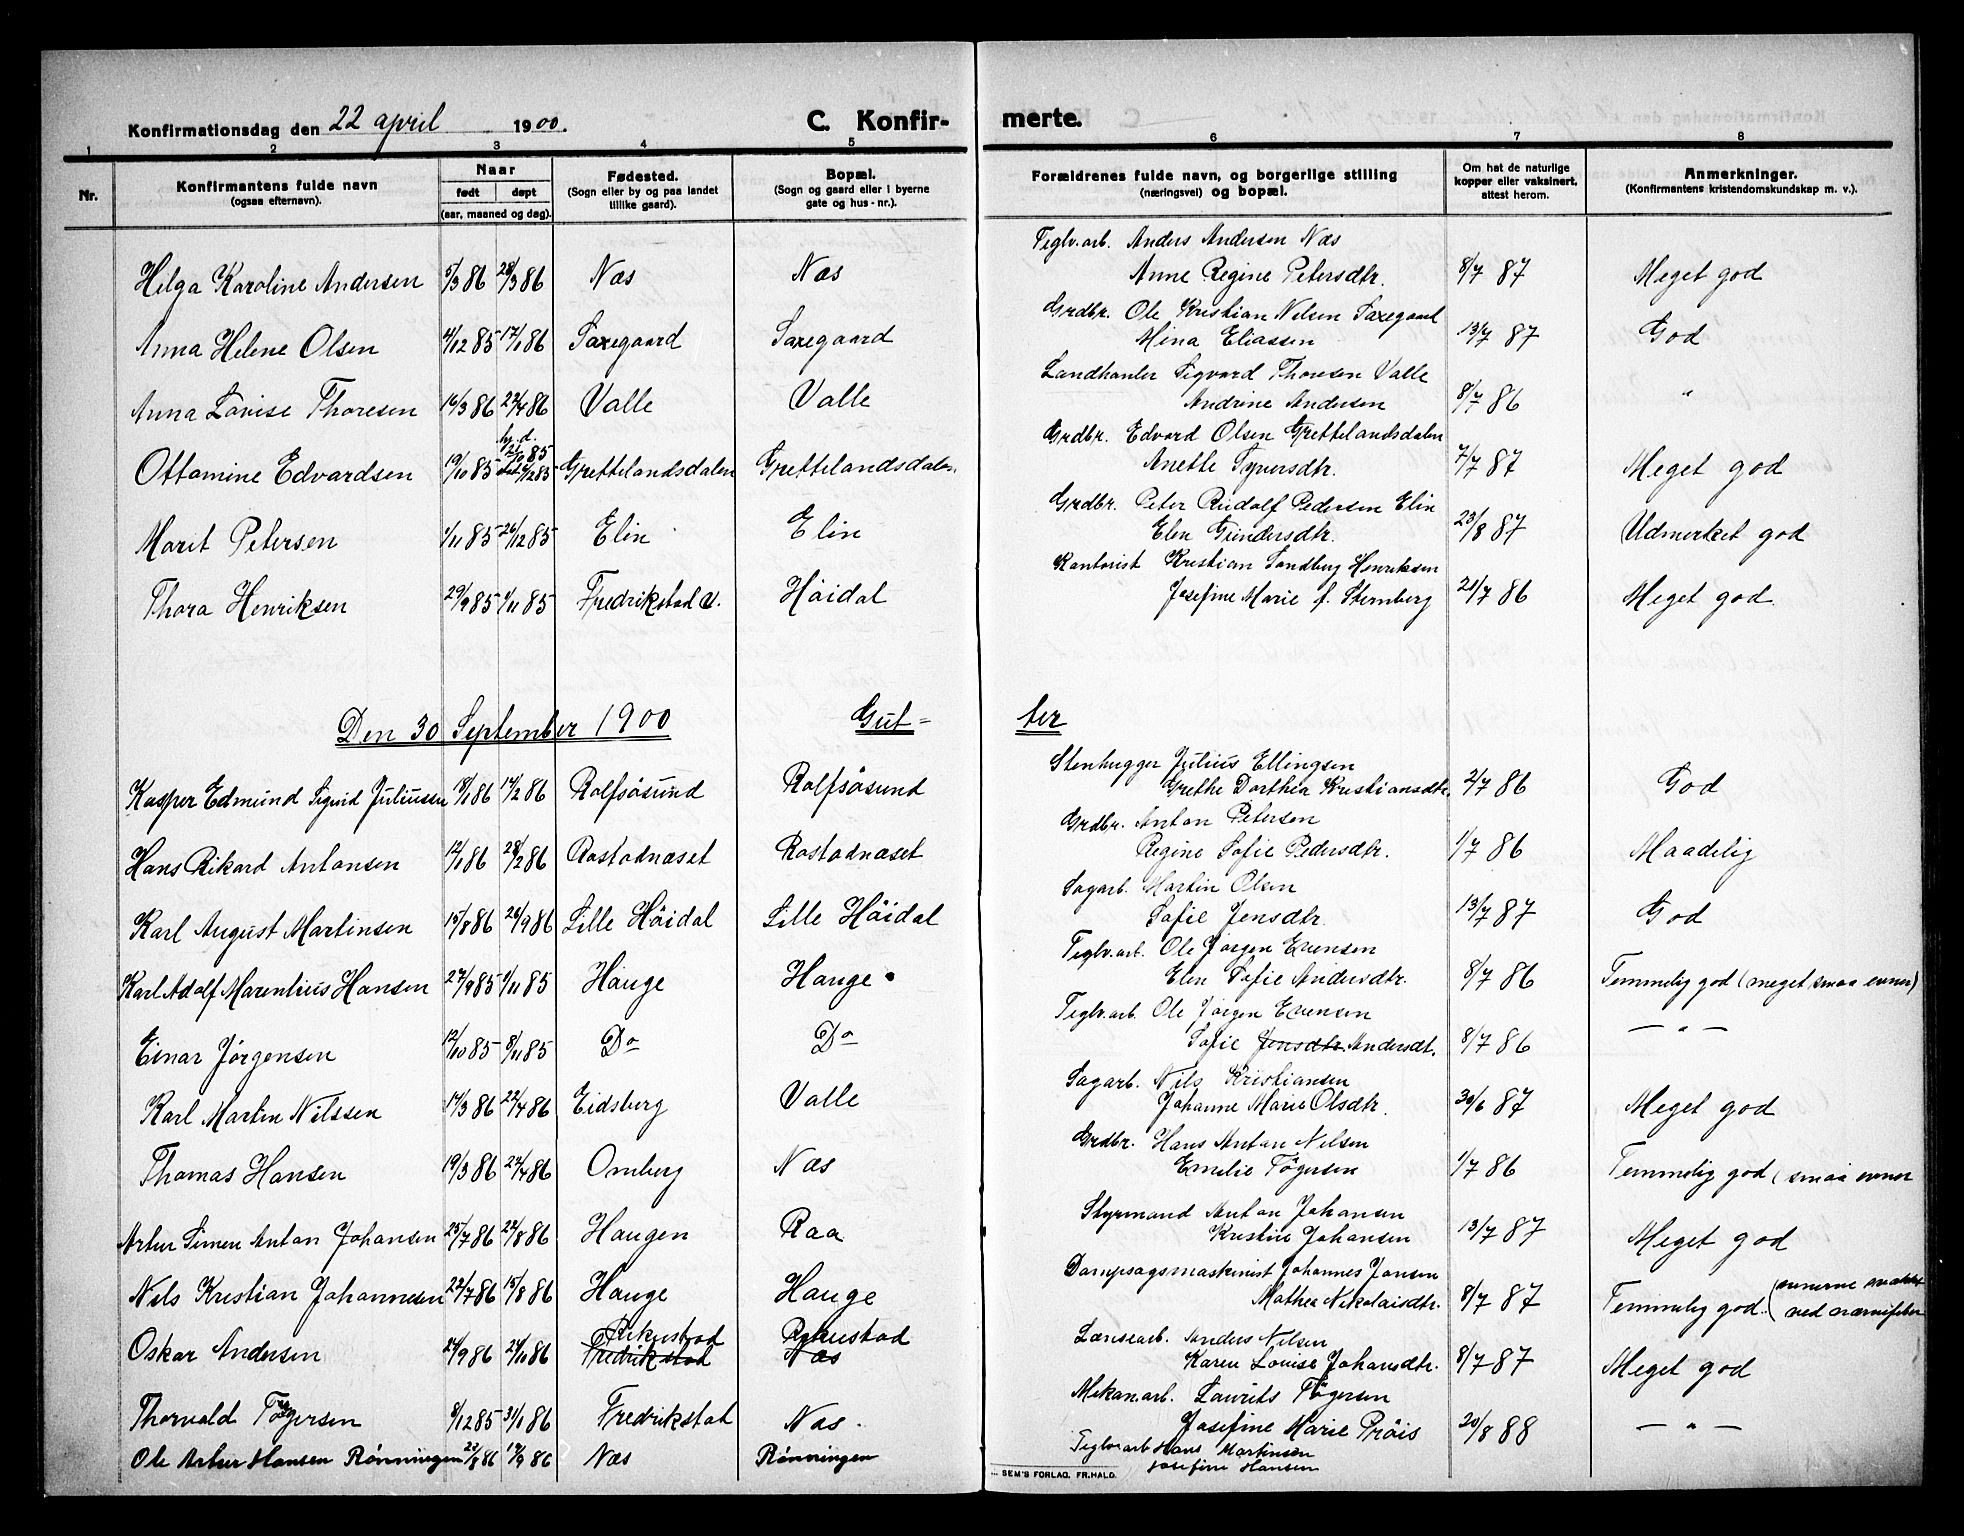 Konfirmationsdag den 22 april 1900.
C. Konfir-
merte.
1 2 3 4 5 6 7 8
Nr.
Konfirmantens fulde navn
(ogsaa efternavn).
Naar
født døpt
(aar, maaned og dag).
Fødested.
(Sogn eller by og paa landet
tillike gaard).
Bopæl.
(Sogn og gaard eller i byerne
gate og hus-nr.).
Forældrenes fulde navn, og borgerlige stilling
(næringsvei) og bopæl.
Om hat de naturlige
kopper eller vaksinert,
attest herom.
Anmerkninger.
(Konfirmantens kristendomskundskap m. v.).
Teglv.arb. Anders Andersen Næs
Helga Karoline Andersen 5/3 86 28/3 86 Næs Næs Anne Regine Petersdtr. 8/7 87 Meget god
Grdbr. Ole Kristian Nilsen Saxegaard
Anna Helene Olsen 4/12 85 17/1 86 Saxegaard Saxegaard Mina Eliassen 13/7 87 God
Landhanler Sigvard Thoresen Valle
Anna Lovise Thoresen 16/3 86 22/4 86 Valle Valle Andrine Andersen 8/7 86 "
Grdbr. Edvard Olsen Grettelandsdalen
hj. d.
Ottomine Edvardsen 19/10 85 21/10 85 6/12 85 Grettelandsdalen Grettelandsdalen Anette Syversdtr. 7/7 87 Meget god
Grdbr. Peter Rudolf Pedersen Elin
Marit Petersen 1/11 85 26/12 85 Elin Elin Elen Gundersdtr. 23/8 87 Udmerket god
Kontorist Kristian Sandberg Henriksen
Thora Henriksen 29/9 85 1/11 85 Fredrikstad v. Höidal Josefine Marie f. Sternberg 21/7 86 Meget god.
Den 30 September 1900 Gut-
ter
Stenhugger Julius Ellingsen
Kasper Edmund Sigvid Juliussen 18/1 86 14/2 86 Rolfsösund Rolfsösund Grethe Dorthea Kristiansdtr. 2/7 86 God
Grdbr. Anton Petersen
Hans Rikard Antonsen 12/1 86 28/2 86 Rostadnæset Rostadnæset Regine Sofie Pedersdtr. 1/7 86 Maadelig
Sagarb. Martin Olsen
Karl August Martinsen 15/8 86 26/9 86 Lille Höidal Lille Höidal Sofie Jensdtr. 13/7 87 God
Teglv.arb. Ole Jörgen Evensen
Karl Adolf Marentius Hansen 27/9 85 1/11 85 Hauge Hauge Elen Sofie Andersdtr. 8/7 86 Temmelig god (meget smaa evner)
Teglv.arb. Ole Jörgen Evensen
Einar Jörgensen 12/10 85 8/11 85 Do Do Sofie Jensdtr. Andersdt. 8/7 86 — " —
Sagarb. Nils Kristiansen
Karl Martin Nilssen 14/3 86 22/4 86 Eidsberg Valle Johanne Marie Olsdtr. 30/6 87 Meget god
Grdbr. Hans Anton Nilsen
Thomas Hansen 19/3 86 22/4 86 Omberg Næs Emilie Tögersen 1/7 86 Temmelig god (smaa evner
Styrmand Anton Johansen
Artur Simen Anton Johansen 25/7 86 22/8 86 Haugen Raa Kristine Johansen 13/7 87 Meget god
Dampsagsmaskinist Johannes Jansen
Nils Kristian Johannesen 22/7 86 15/8 86 Hauge Hauge Mathea Nikolaisdtr. 8/7 87 Temmelig god. (evnerne svækket
ved nervefeber
Rekustad Rekustad Lænsearb. Anders Nilsen
Oskar Andersen 24/9 86 24/10 86 Fredrikstad Næs Karen Lovise Johansdtr. 8/7 87 Meget god
Mekan.arb. Laurits Tögersen
Thorvald Tögersen 8/12 85 31/1 86 Fredrikstad Næs. Josefine Marie Pröis 20/8 88 — " —
Ole Artur Hansen Rönningen 22/8 86 19/9 86 Næs Rönningen Teglv.arb Hans Martinsen
Josefine Hansen
SEM'S FORLAG, FR.HALD.